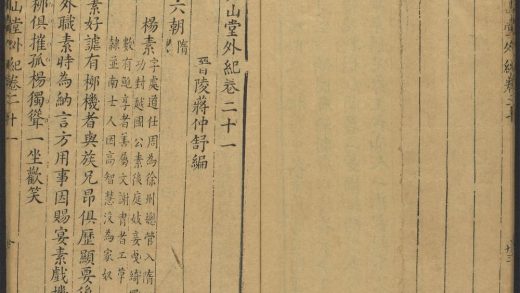 堂外紀卷二十
山堂外紀卷二十一
晉陵蔣仲舒編
六朝隋
楊素
字處道仕周為徐州總管入隋
功封越國公素後庭妓妾曳綺羅
數有鮑亨者善屬文謝胄者工草
隸並南士人因高智慧没為家奴
素好謔有柳機者與族兄昂俱歷顯要後
外職素時為納言方用事因賜宴素戲機
柳俱摧孤楊獨聳一坐歡笑
山堂外紀卷二十一